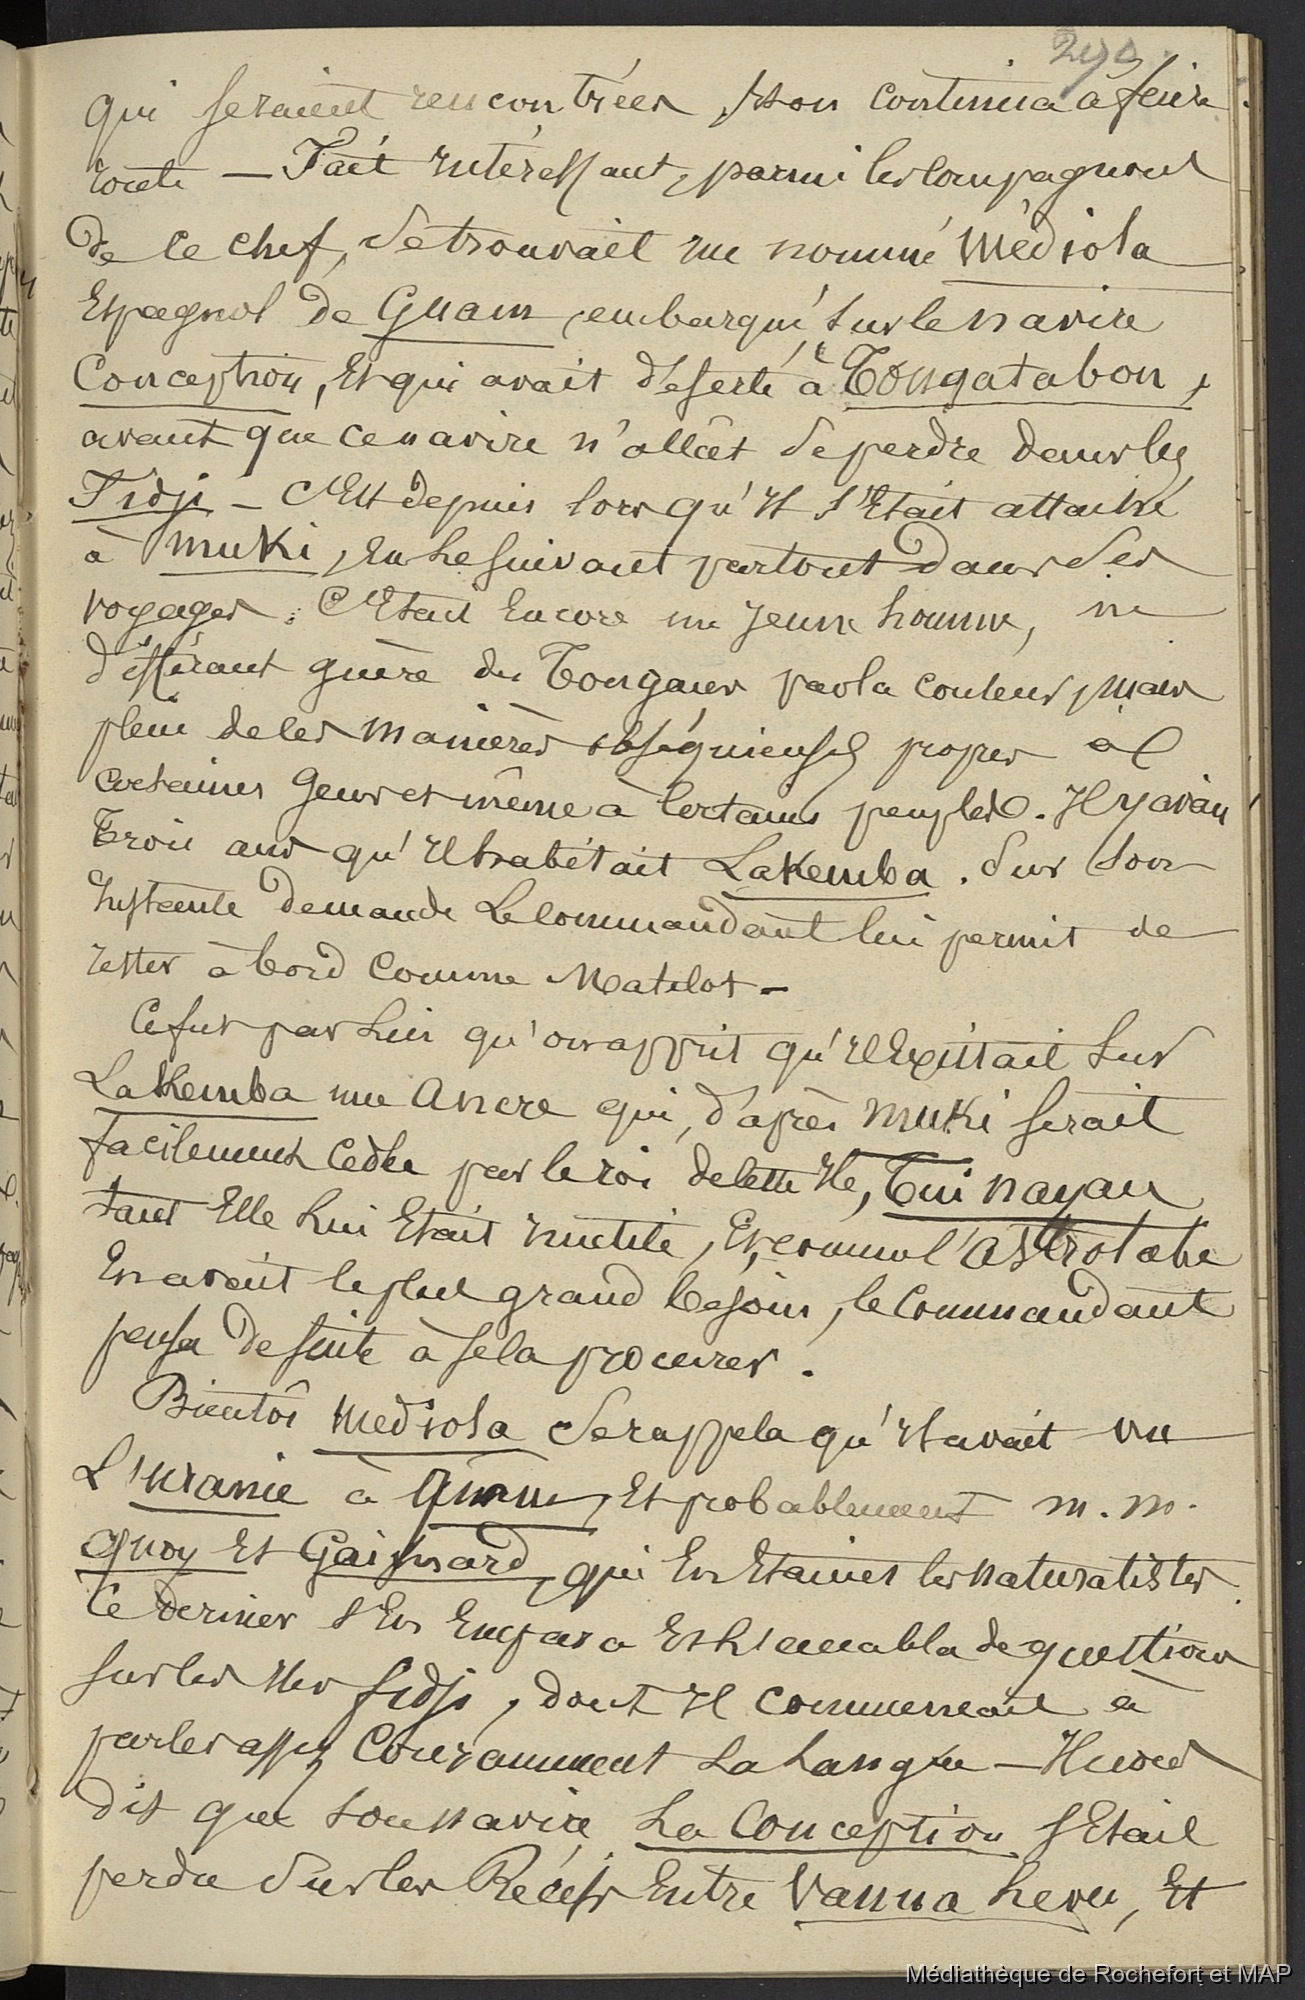 290
qui seraient rencontrées, Puis on continua à faire
route — Fait intéressant, parmi les compagnons
de ce chef, se trouvait un nommé Médiola
Espagnol de Guam, embarqué sur le navire
Conception, Et qui avait déserté à Tongatabou,
avant que ce navire n'allât se perdre dans les
Fidji — C'Est depuis lors qu'Il s'Etait attaché
à Muki, En Le suivant partout dans Ses
voyages. C'Etait Encore un Jeune homme, ne
différant guère des Tongaiens par la couleur, mais
plein de ces manières obséquieuses propres à
certaines Gens et même à certains peuples. Il y avait
trois ans qu'Il habitait Lakemba. Sur Son
Instante demande Le Commandant lui permit de
rester à bord Comme Matelot —
Ce fut par Lui qu'on apprit qu'Il Existait Sur
Lakemba une Ancre qui, d'après Muki serait
facilement Cédée par le roi de cette Ile, Tui nayau
tant Elle Lui Etait Inutile, Et, comme l'Astrolabe
En avait le plus grand besoin, le Commandant
pensa de suite à se la procurer.
Bientôt Médiola Se rappela qu'Il avait vu
L'Uranie à Guam, Et probablement M. M.
Quoy Et Gaimard, qui En Etaient les naturalistes.
Ce dernier s'En Empara Et L'accabla de questions
sur les Iles fidji, dont Il Commençait à
parler assez Couramment La Langue — Il nous
dit que son navire La Conception s'Etait
perdu Sur les Récifs Entre Vanua Levu, Et
Médiathèque de Rochefort et MAP